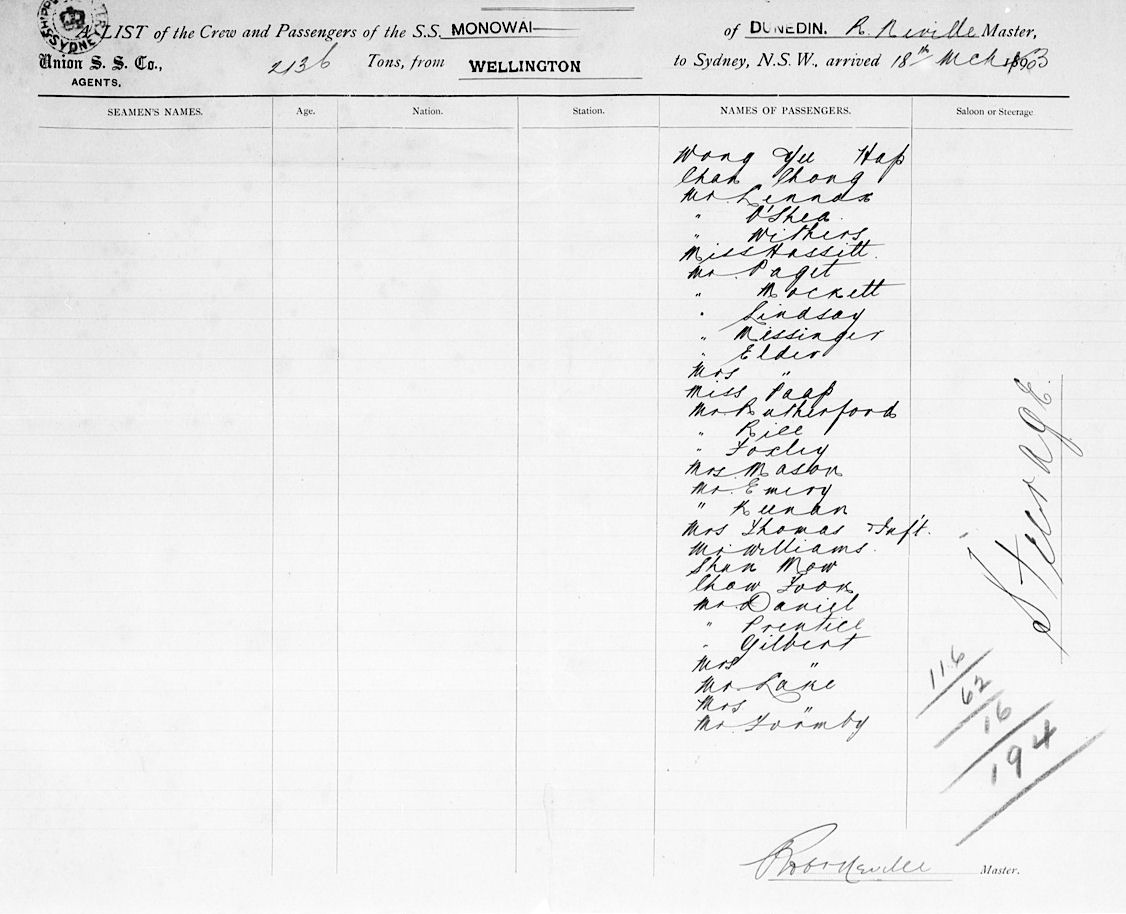 A LIST of the Crew and Passengers of the S.S. MONOWAI of DUNEDIN. R. Neville Master,
Union S. S. Co., 2136 Tons, from WELLINGTON to Sydney, N.S.W., arrived 18th Mch 1903
AGENTS,
SEAMEN'S NAMES. Age. Nation. Station. NAMES OF PASSENGERS. Saloon or Steerage
Wong Yee Hap
Chan Chong
Mr Lennox
" O'Shea.
" Withers
Miss Hassitt.
Mr. Paget
" Mockett
" Lindsay
" Messinger
" Elder
Mrs "
Miss Paap
Mr Rutherford
" Rill
" Foxley
Mrs Mason
Mr. Emery
" Keenan
Mrs Thomas & Inf't.
Mr Williams.
Shun Mow
Chow Foon
Mr Daniel
" Prentice
" Gilbert
Mrs "
Mr. Lake
Mrs "
Mr. Formby
Steerage.
116
62
16
194
Robt Neville Master.